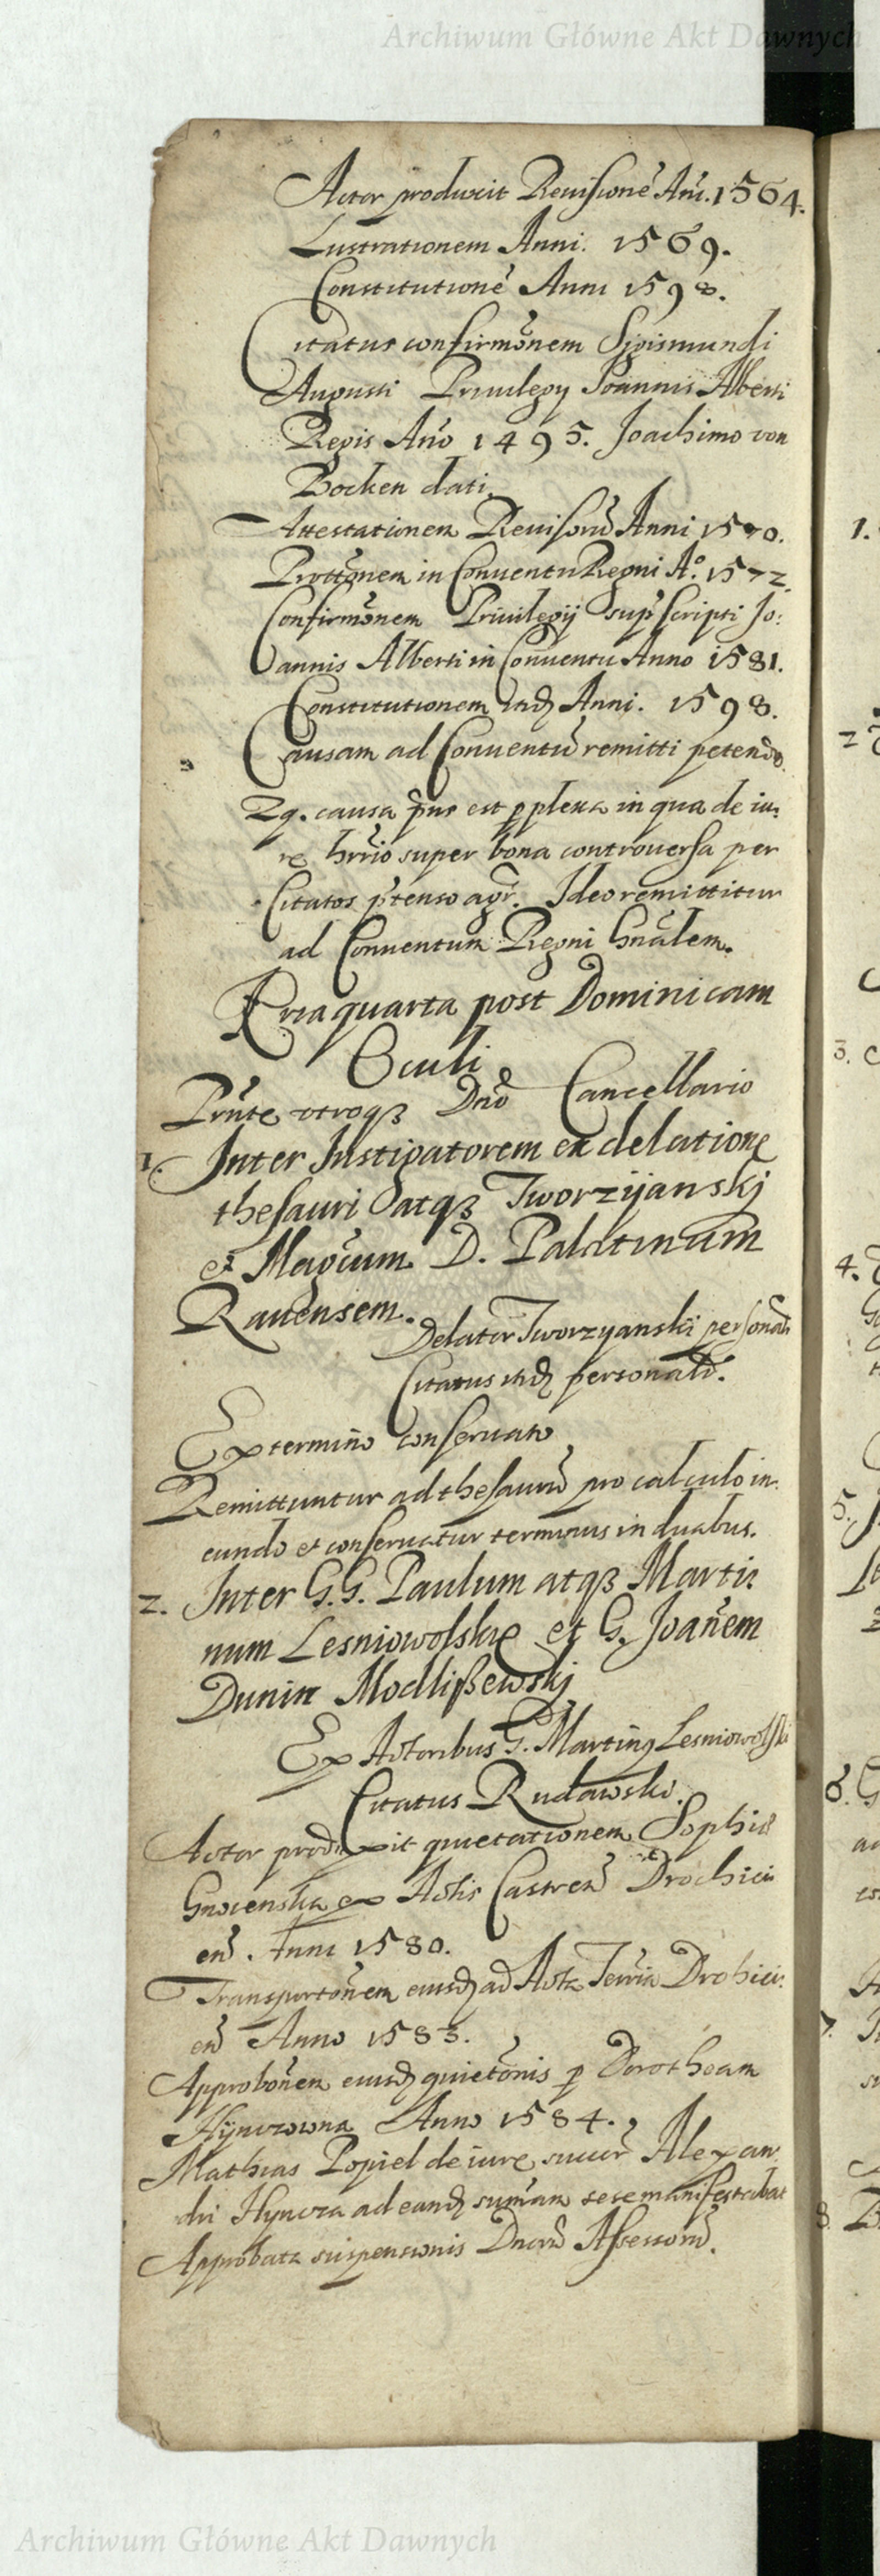 Archiwum Główne Akt Dawnych
Actor produxit Reuisionē Añi. 1564.
Lustrationem Anni. 1569.
Constitutionē Anni 1598.
Citatus confirmõnem Sigismundi
Augusti Priuilegy Joannis Alberti
Regis Año 1495. Joachimo von
Bocken dati.
Attestationem Reuisorũ Anni 1570.
Prott̃onem in Conuentu Regni A.º 1572.
Confirmõnem Priuilegij sup̃scripti Jo:
annis Alberti in Conuentu Anno 1581.
Constitutionem itidẽ Anni. 1598.
Causam ad Conuentũ remitti petendo.
Zq. causa p̃ns est p̱plexa in qua de iu:
re hr̃rio super bona controuersa per
Citatos p̃tenso agr̃. Ideo remittitur
ad Conuentum Regni Gnãlem.
Feria quarta post Dominicam
Oculi
Prñte vtroqȝ Dño Cancellario
1. Inter Instigatorem ex delatione
thesauri atqȝ Tworzijanskj
et Magcum D. Palatinum
Rauensem.
Delator Tworzyanski personali
Citatus itidẽ personalr̃.
Ex termino conseruato
Remittuntur ad thesaurũ pro calculo in:
eundo et conseruatur terminus in duabus.
2. Inter G.G. Paulum atqȝ Marti:
num Lesniowolskie et G. Joañem
Dunin Modlißewskj
Ex Actoribus G. Martinꝯ Lesniowolski
Citatus Rudawski.
Actor produxit quietationem Sophiæ
Gnoienska ex Actis Castreñ Drohici
eñ. Anni 1580.
Transportõnem eiusdẽ ad Acta Terr̃ia Drohici:
eñ Anno 1583.
Approbõnem eiusdẽ quietõnis p̱ Dorotheam
Hijnczowna Anno 1584.
Mathias Popiel de iure succur̃ Alexan:
dri Hyncza ad eandẽ sum̃am sese manifestabat
Approbata suspensionis Dñorũ Assessorũ.
1.
2
3. C
4.
5.
6. G
7.
8.
Archiwum Główne Akt Dawnych